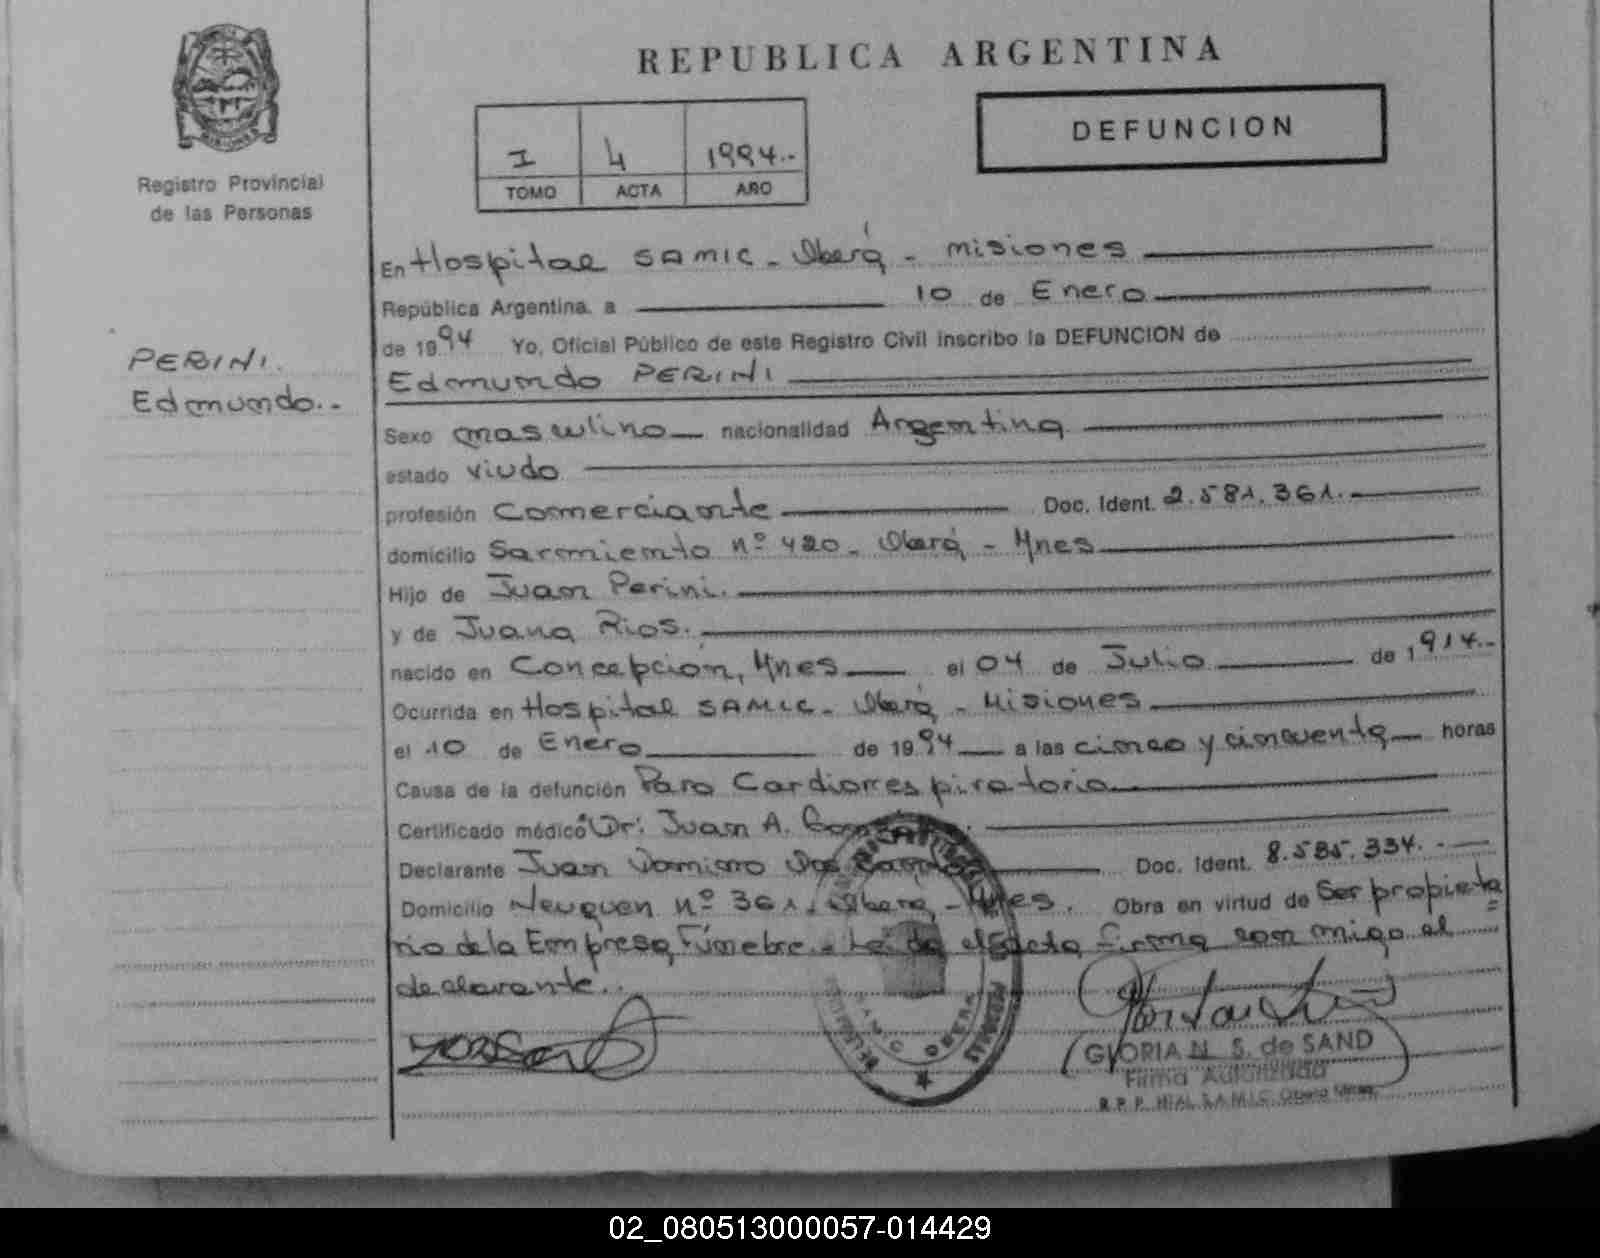 REPUBLICA ARGENTINA
DEFUNCION
I 4 1994.-
TOMO ACTA AÑO
Registro Provincial
de las Personas
PERINI.
Edmundo..-
En Hospital SAMIC - Oberá - Misiones
República Argentina, a 10 de Enero
de 1994 Yo, Oficial Público de este Registro Civil inscribo la DEFUNCION de
Edmundo PERINI
Sexo masculino nacionalidad Argentina
estado viudo
profesión Comerciante Doc. Ident. 2.581.361.-
domicilio Sarmiento nº 420 - Oberá - Mnes
Hijo de Juan Perini.
y de Juana Rios.
nacido en Concepción, Mnes el 04 de Julio de 1914.-
Ocurrida en Hospital SAMIC - Oberá - Misiones
el 10 de Enero de 1994 a las cinco y cincuenta horas
Causa de la defunción Paro Cardiorrespiratorio
Certificado médico Dr: Juan A.
Declarante Juan Domingo Dos Santos Doc. Ident. 8.585.334.-
Domicilio Neuquen nº 361. Oberá - Mnes. Obra en virtud de Ser propieta
rio de la Empresa Fúnebre.- Leida el acta firma con migo el
declarante..
OBERA
MISIONES
GLORIA N. S. de SAND
Firma Autorizada
R.P.P. HTAL S.A.M.I.C. Oberá Mnes.
02_080513000057-014429